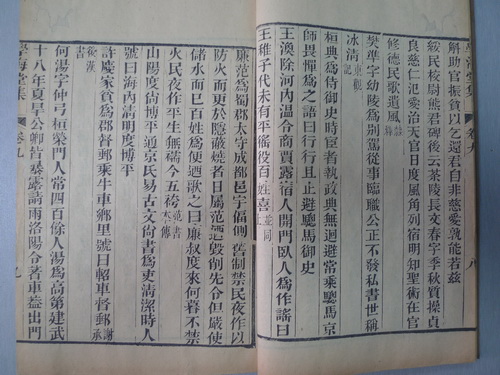 斛助官振貧以乞還君自非慈愛孰能若茲
綏民校尉熊君碑後云茶陵長文春字季秋質操貞
良慈仁汜愛治天官日度風角列宿明知聖術在官
修德民歌遺風
樊準字幼陵為別駕從事臨職公正不發私書世稱
冰清東觀記
桓典為侍御史時宦者執政典無迴避常乘驄馬京
師畏憚為之語曰行行且止避驄馬御史
王渙除河內溫令商賈露宿人開門臥人為作謠曰
王稚子代未有平徭役百姓喜上並同
廉范為蜀郡太守成都邑宇偪側舊制禁民夜作以
防火而更於隱蔽燒者日屬范迺毀削先令但嚴使
儲水而已百姓為便迺歌之曰廉叔度來何暮不禁
火民夜作平生無襦今五袴范書本傳
山陽度尚博平通京氏易古文尚書為吏清潔時人
號曰海內清明度博平
許慶家貧為郡督郵乘牛車鄉里號曰軺車督郵謝承
後漢
何湯字仲弓桓榮門人常四百餘人湯為高第建武
十八年夏旱公卿皆暴露請雨洛陽令著車蓋出門
學海堂集 卷九 九